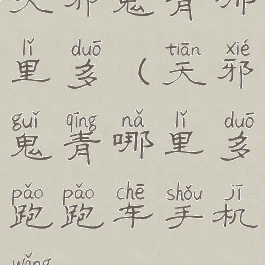 天邪鬼青哪
lǐ duō tiān xié
里多（天邪
guǐ qīng nǎ lǐ duō
鬼青哪里多
pǎo pǎo chē shǒu jī
跑跑车手机
wǎng